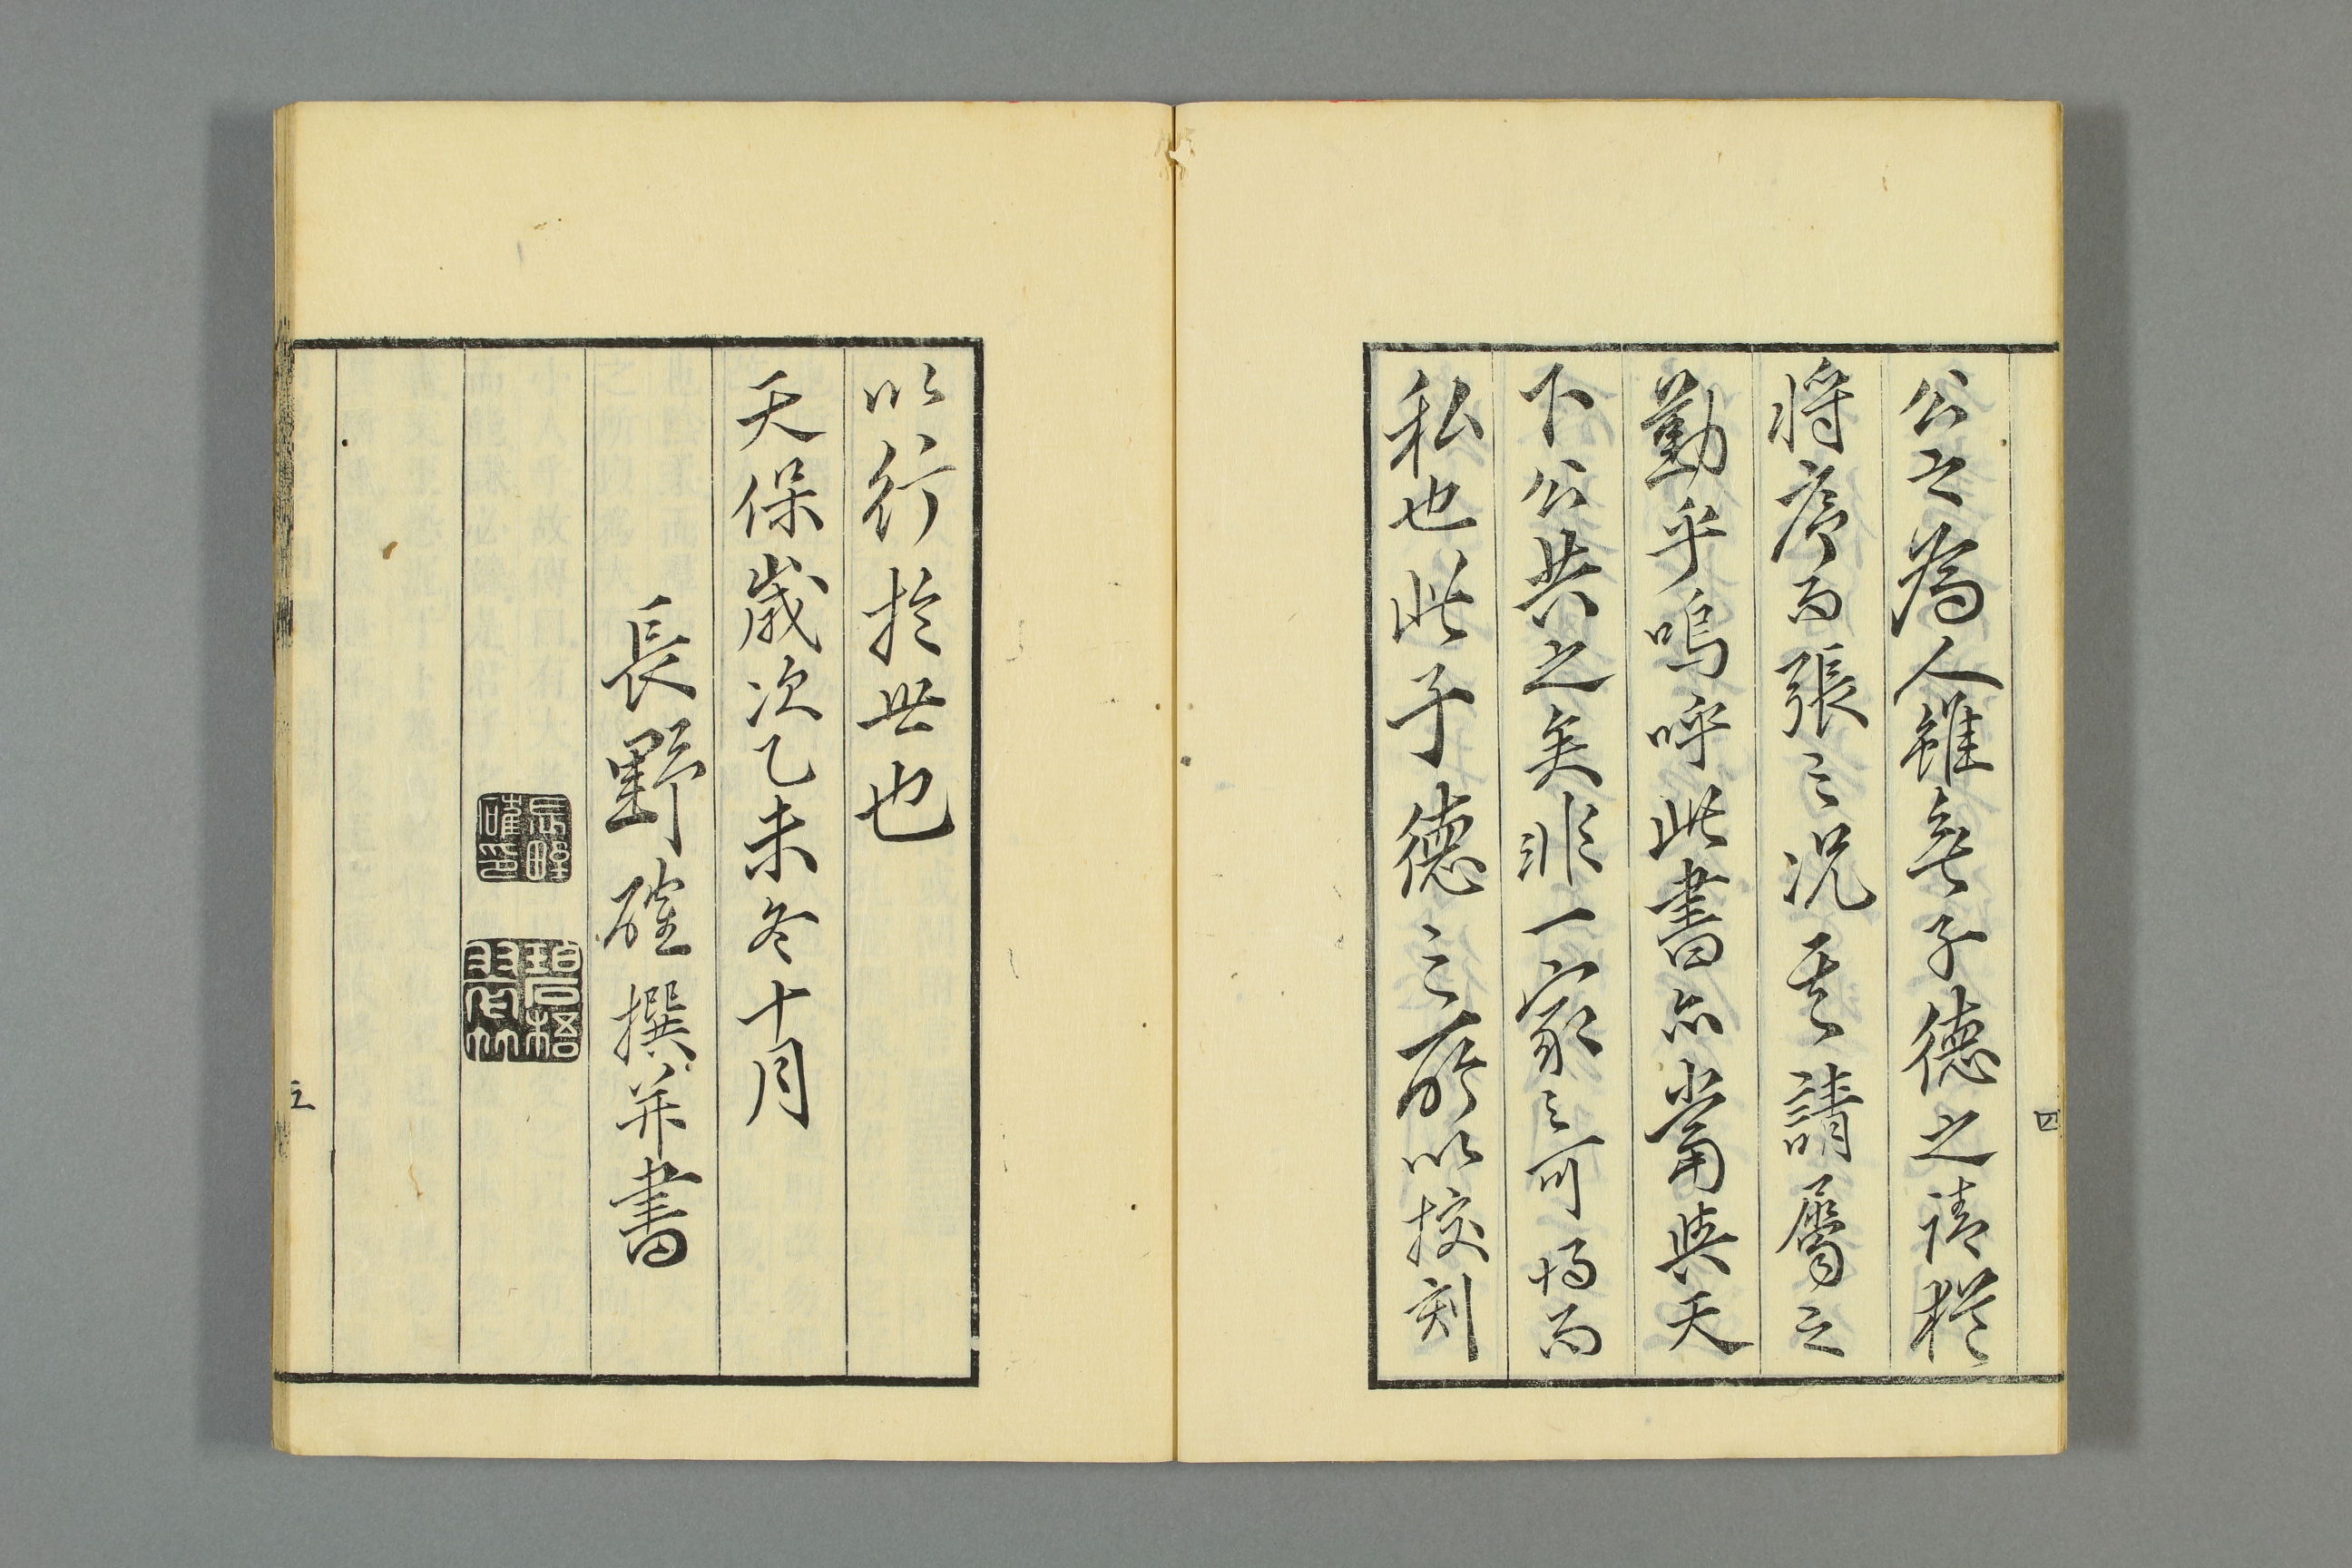 公之為人雖無子德之請猶
將序而張之況其請屬之
勤乎嗚呼此書亦當與天
下公共之矣非一家之可得而
私也此子德之所以挍刻
四
以行於世也
天保歲次乙未冬十月
長野確撰并書
長野確印
碧梧翠竹
五